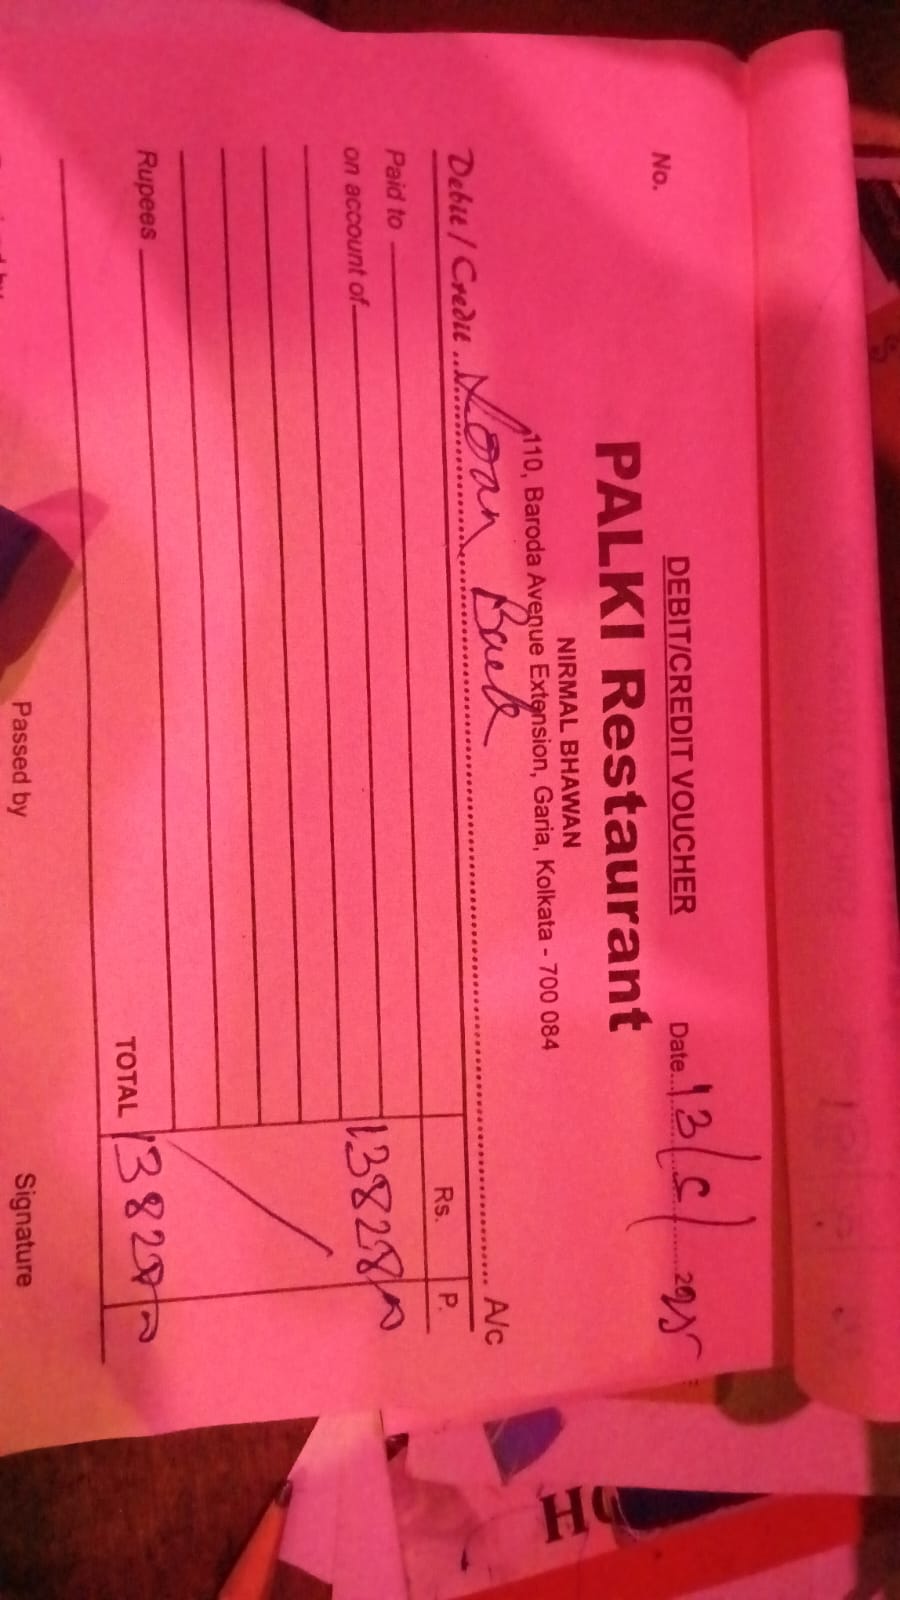 DEBIT/CREDIT VOUCHER
No. Date 13/5/2025
PALKI Restaurant
NIRMAL BHAWAN
110, Baroda Avenue Extension, Garia, Kolkata - 700 084
Debit / Credit Loan A/c
Rs. P.
Paid to
on account of 13828/-
Rupees TOTAL 13828/-
Passed by Signature